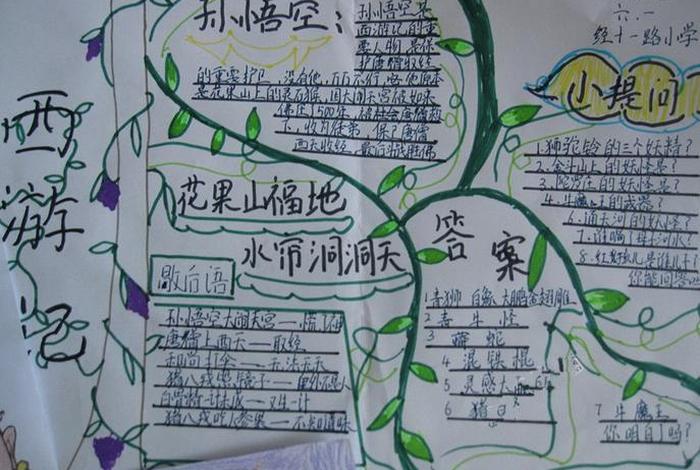 西游记
孙悟空:
孙悟空是
西游记的重
要人物,是保
护唐僧取经
的重要护卫,没有他,万万不行,
是花果山上的灵石猴,因大闹天宫被如来
佛压500年,
下,收为徒弟,保了唐僧
西天取经,最后斗战胜佛
花果山福地
水帘洞洞天
歇后语
孙悟空大闹天宫——慌了神
唐僧上西天——取经
和尚打伞——无法无天
猪八戒照镜子——里外不是人
白骨精
猪八戒吃人参果——不知道味
答案
1 青狮 白象 大鹏金翅雕
2 青牛怪
3 蟒蛇
4 混铁棍
5 灵感大
6 猪
7 牛魔王
你明白了吗?
六.一
经十一路小学
小提问
1.狮驼岭的三个妖精?
2.金山上的妖怪是?
3.陀罗庄的妖怪是?
4.牛魔王的武器?
6.通天河的妖怪?
7.谁喝了母子河水?
8.红孩儿是谁儿子?
你能回答